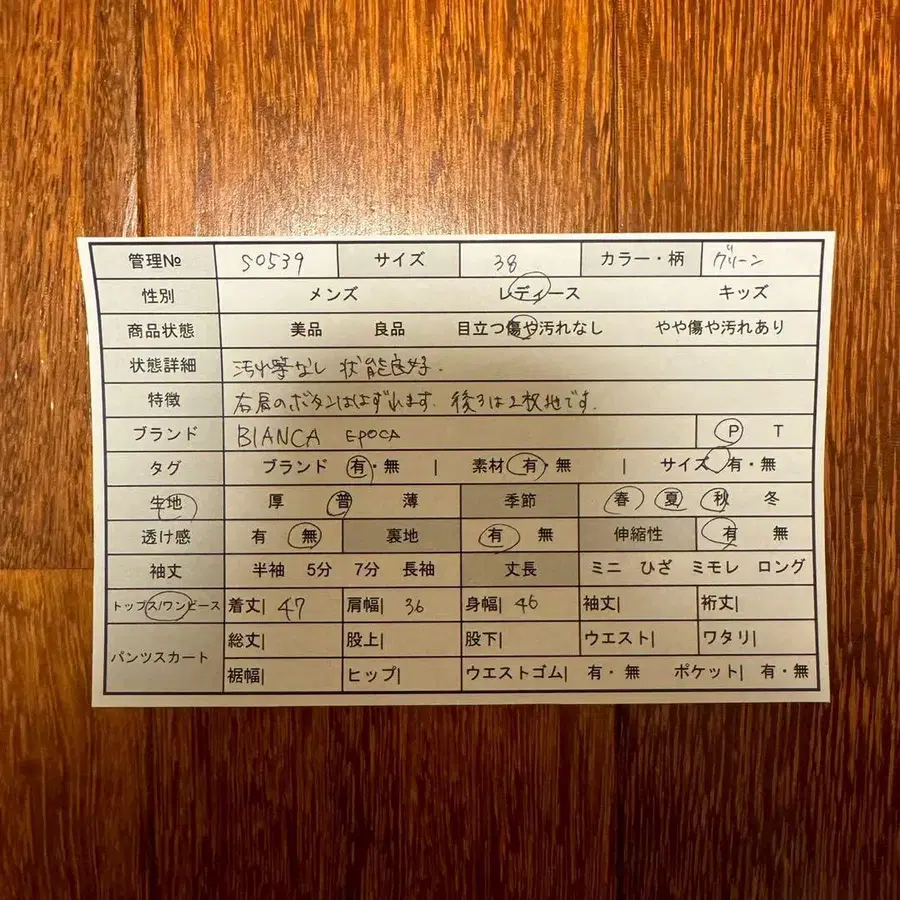 管理№ S0539 サイズ 38 カラー・柄 グリーン
性別 メンズ レディース キッズ
商品状態 美品 良品 目立つ傷や汚れなし やや傷や汚れあり
状態詳細 汚れ等なし 状態良好.
特徴 右肩のボタンははずれます. 後ろは2枚地です.
ブランド BIANCA EPOCA P T
タグ ブランド 有・無 | 素材 有・無 | サイズ 有・無
生地 厚 普 薄 季節 春 夏 秋 冬
透け感 有 無 裏地 有 無 伸縮性 有 無
袖丈 半袖 5分 7分 長袖 丈長 ミニ ひざ ミモレ ロング
トップス/ワンピース 着丈| 47 肩幅| 36 身幅| 46 袖丈| 裄丈|
パンツスカート 総丈| 股上| 股下| ウエスト| ワタリ|
裾幅| ヒップ| ウエストゴム| 有・無 ポケット| 有・無